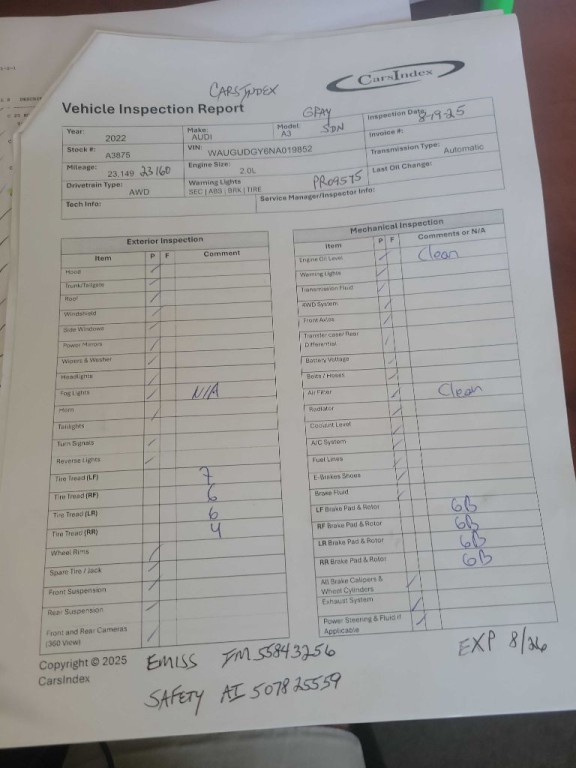 CARSINDEX
CarsIndex
Vehicle Inspection Report
GRAY
Year: 2022 Make: AUDI Model: A3 SDN Inspection Date: 8-19-25
Stock #: A3875 VIN: WAUGUDGY6NA019852 Invoice #:
Mileage: 23,149 23160 Engine Size: 2.0L Transmission Type: Automatic
Drivetrain Type: AWD Warning Lights SEC | ABS | BRK | TIRE PR09575 Last Oil Change:
Tech Info: Service Manager/Inspector Info:
Exterior Inspection
Item P F Comment
Hood
Trunk/Tailgate
Roof
Windshield
Side Windows
Power Mirrors
Wipers & Washer
Headlights
Fog Lights N/A
Horn
Taillights
Turn Signals
Reverse Lights
Tire Tread (LF) 7
Tire Tread (RF) 6
Tire Tread (LR) 6
Tire Tread (RR) 4
Wheel Rims
Spare Tire / Jack
Front Suspension
Rear Suspension
Front and Rear Cameras
(360 View)
Mechanical Inspection
Item P F Comments or N/A
Engine Oil Level Clean
Warning Lights
Transmission Fluid
4WD System
Front Axles
Transfer case/ Rear
Differential
Battery Voltage
Belts / Hoses
Air Filter Clean
Radiator
Coolant Level
A/C System
Fuel Lines
E-Brakes Shoes
Brake Fluid
LF Brake Pad & Rotor 6B
RF Brake Pad & Rotor 6B
LR Brake Pad & Rotor 6B
RR Brake Pad & Rotor 6B
All Brake Calipers &
Wheel Cylinders
Exhaust System
Power Steering & Fluid if
Applicable
Copyright © 2025
CarsIndex
EMISS IM 55843256
SAFETY AI 507825559
EXP 8/26